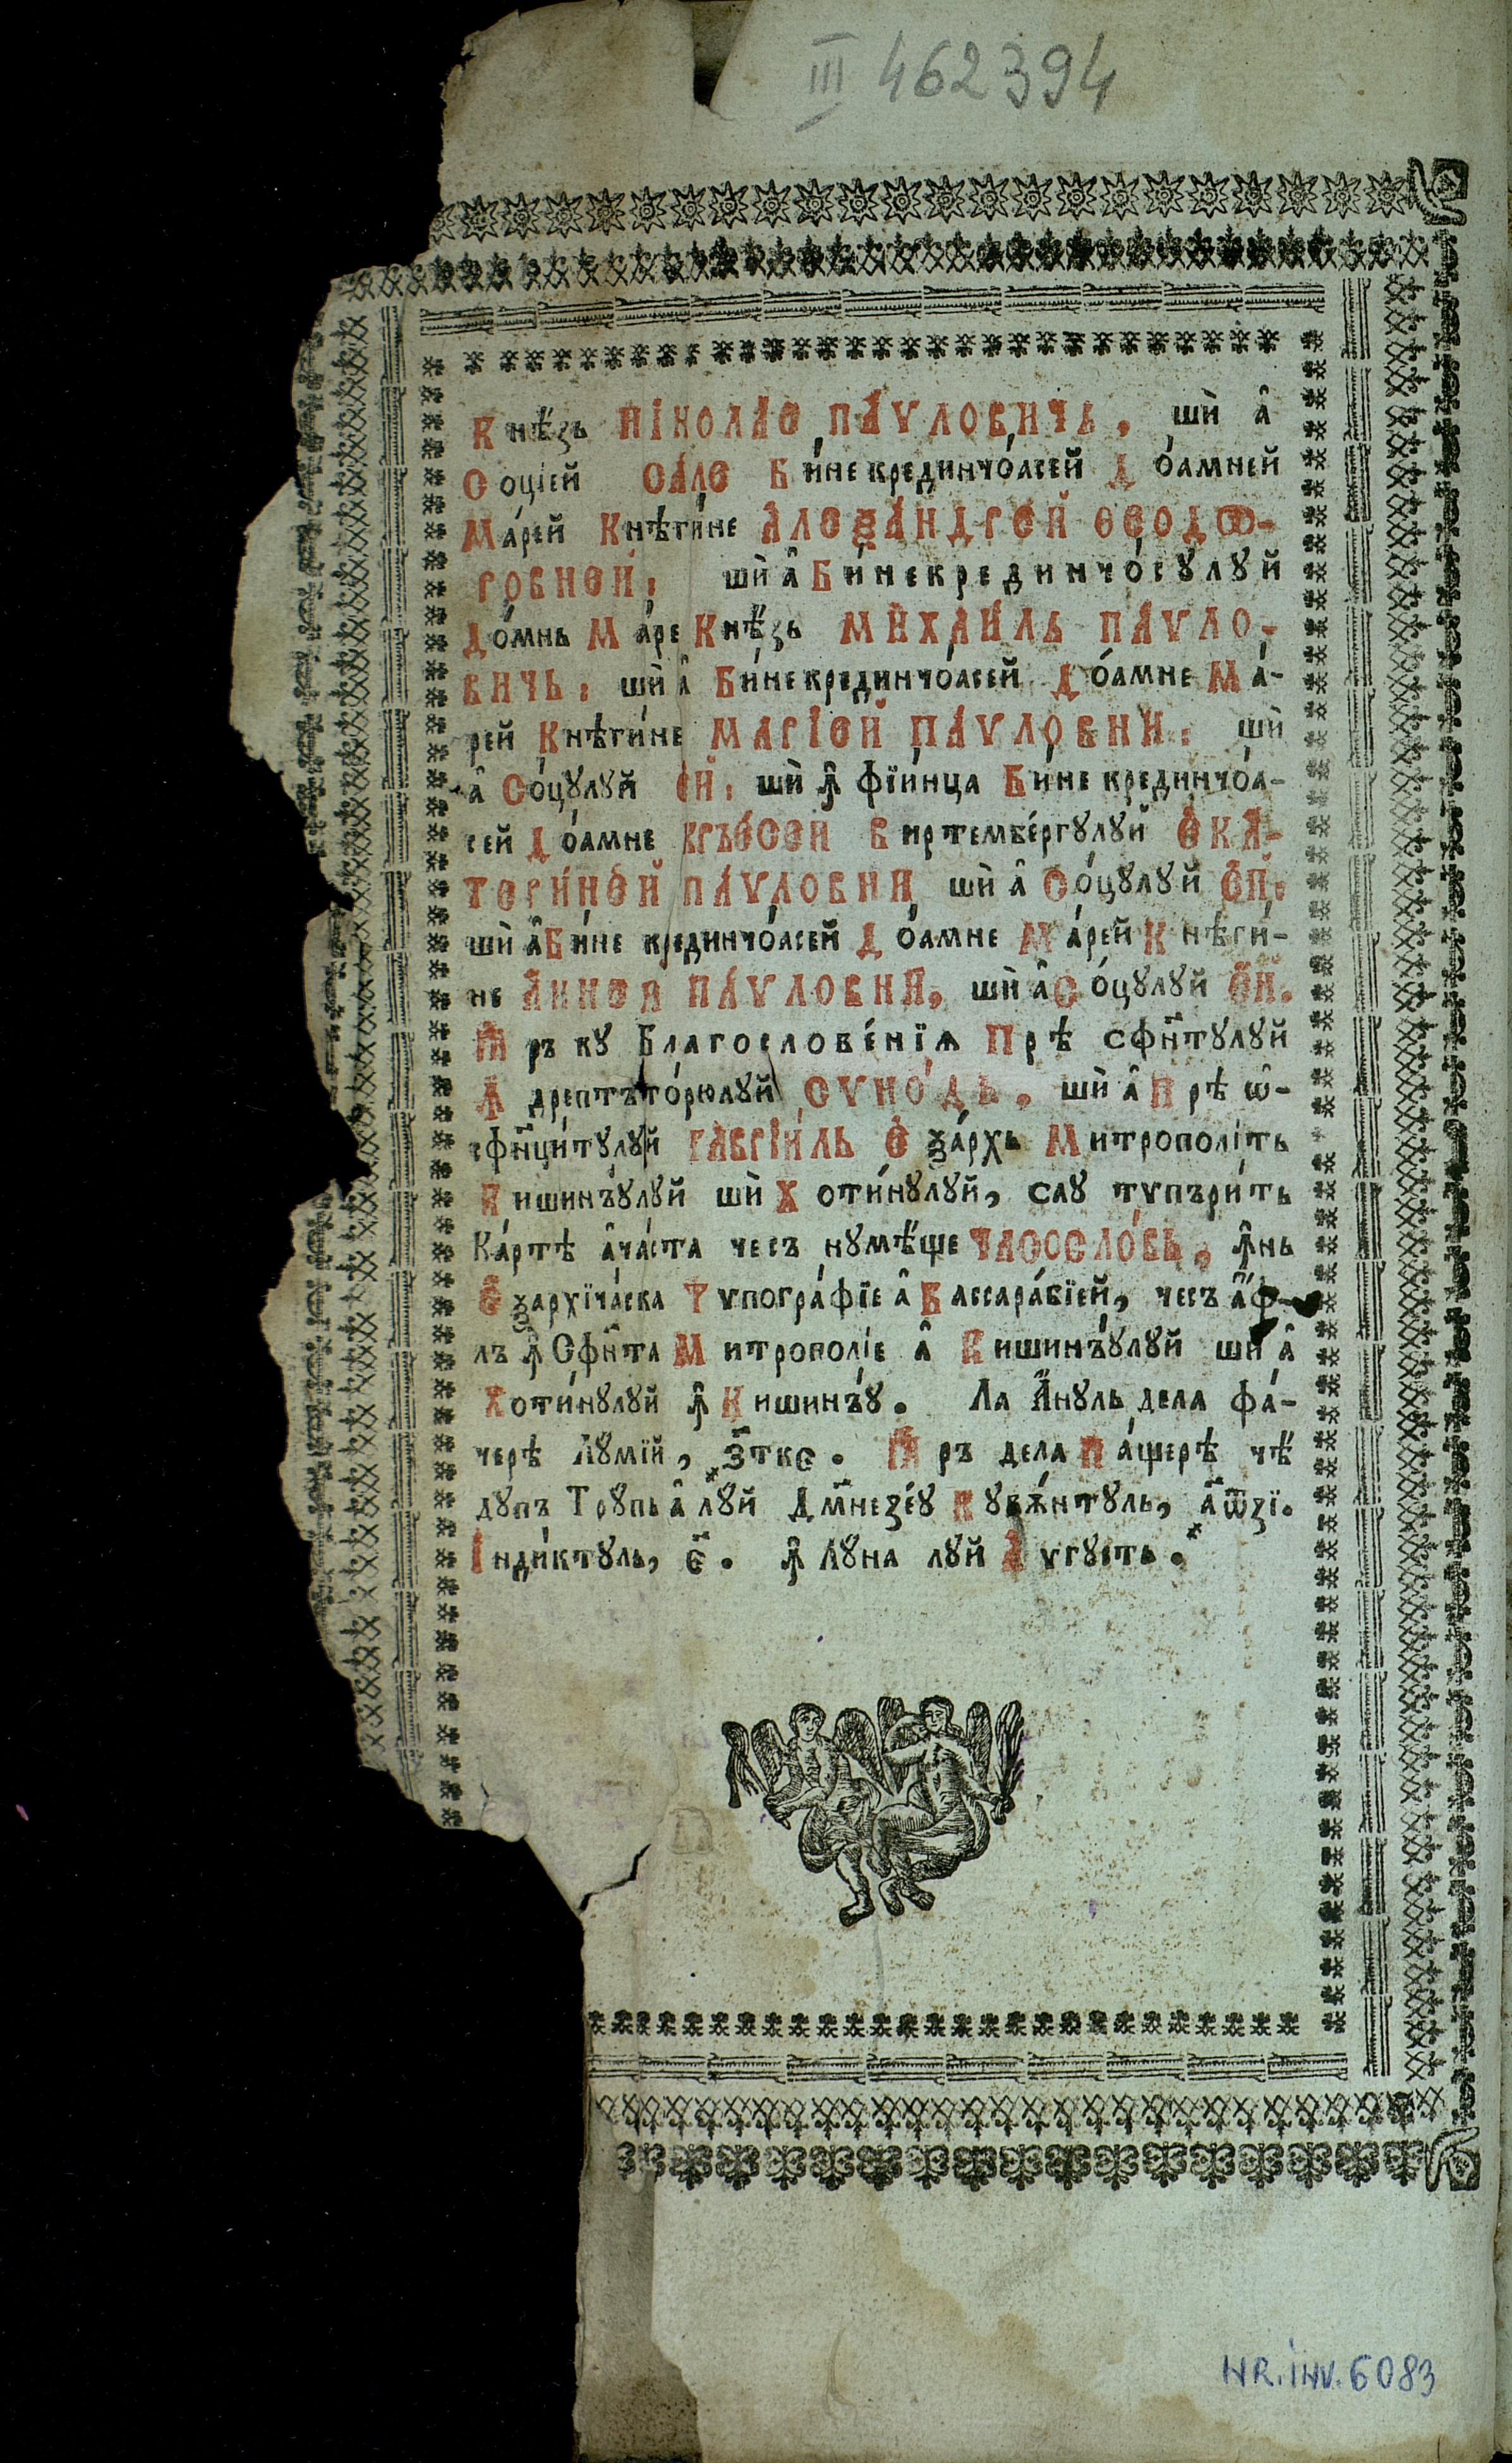 III 462394
Кнѣ́зь НІКОЛАЕ ПА́ѴЛОВИЧЬ, шѝ а̂
Соцїей САЛЕ Би́не крединчо́асей До́амней
Ма́рей Кнѣги́не АЛЕѮА́НДРЕЙ ѲЕОДѠ-
РОВНЕЙ, шѝ а̂ Би́некрединчо́сꙋлꙋй
До́мнь Ма́ре Кнѣ́зь МИХАИ́ЛЬ ПА́ѴЛО-
ВИЧЬ: шѝ а̂ Би́не крединчо́асей До́амне Ма́-
рей Кнѣги́не МАРІЕЙ ПА́ѴЛОВНИ: шѝ
а̂ Со́цꙋлꙋй ЕЙ: шѝ ꙟ̂ фїи́нца Би́не крединчо́а-
сей До́амне КРЪЕ́СЕЙ Виртембе́ргꙋлꙋй ЕКА-
ТЕРИ́НЕЙ ПА́ѴЛОВНИ, шѝ а̂ Со́цꙋлꙋй ЕЙ:
шѝ а̂ Би́не крединчо́асей До́амне Ма́рей Кнѣги́-
не А́ННЕЙ ПА́ѴЛОВНИ, шѝ а̂ Со́цꙋлꙋй ЕЙ.
Ꙗръ кꙋ Благослове́нїѧ Прѣ сфн҃тꙋлꙋй
Ꙟдрептъто́рюлꙋй СѴНО́ДЬ. шѝ а̂ Прѣ ѡ̂-
сфн҃ци́тꙋлꙋй ГАВРІИ́ЛЬ Еѯа́рхь Митрополі́ть
Кишинъ́ꙋлꙋй шѝ Хоти́нꙋлꙋй, сау тѵпъри́ть
Ка́ртѣ а̂ча́ста чесъ нꙋмѣ́ще ЧАСОСЛО́ВЬ, ꙟ̂нь
Еѯархїча́ска Тѵпогра́фїе а̂ Бассара́бїей, чесъ а҆́ф-
лъ ꙟ̂ Сфн҃та Митрополі́е а̂ Кишинъ́ꙋлꙋй шѝ а̂
Хоти́нꙋлꙋй ꙟ̂ Кишинъ́ꙋ. Ла А́нꙋль дела фа́-
черѣ Лꙋ́мїй, ҂зт҃ке. Ꙗръ дела На́щерѣ чѣ́
дꙋпъ Трꙋпь а̂ лꙋй Дм҃незе́ꙋ Кꙋвѫ́нтꙋль, ҂аѿ҃зї.
Індиктꙋль, є҃. ꙟ̂ Лꙋна лꙋй А́ѵгꙋсть.
NR. INV. 6083